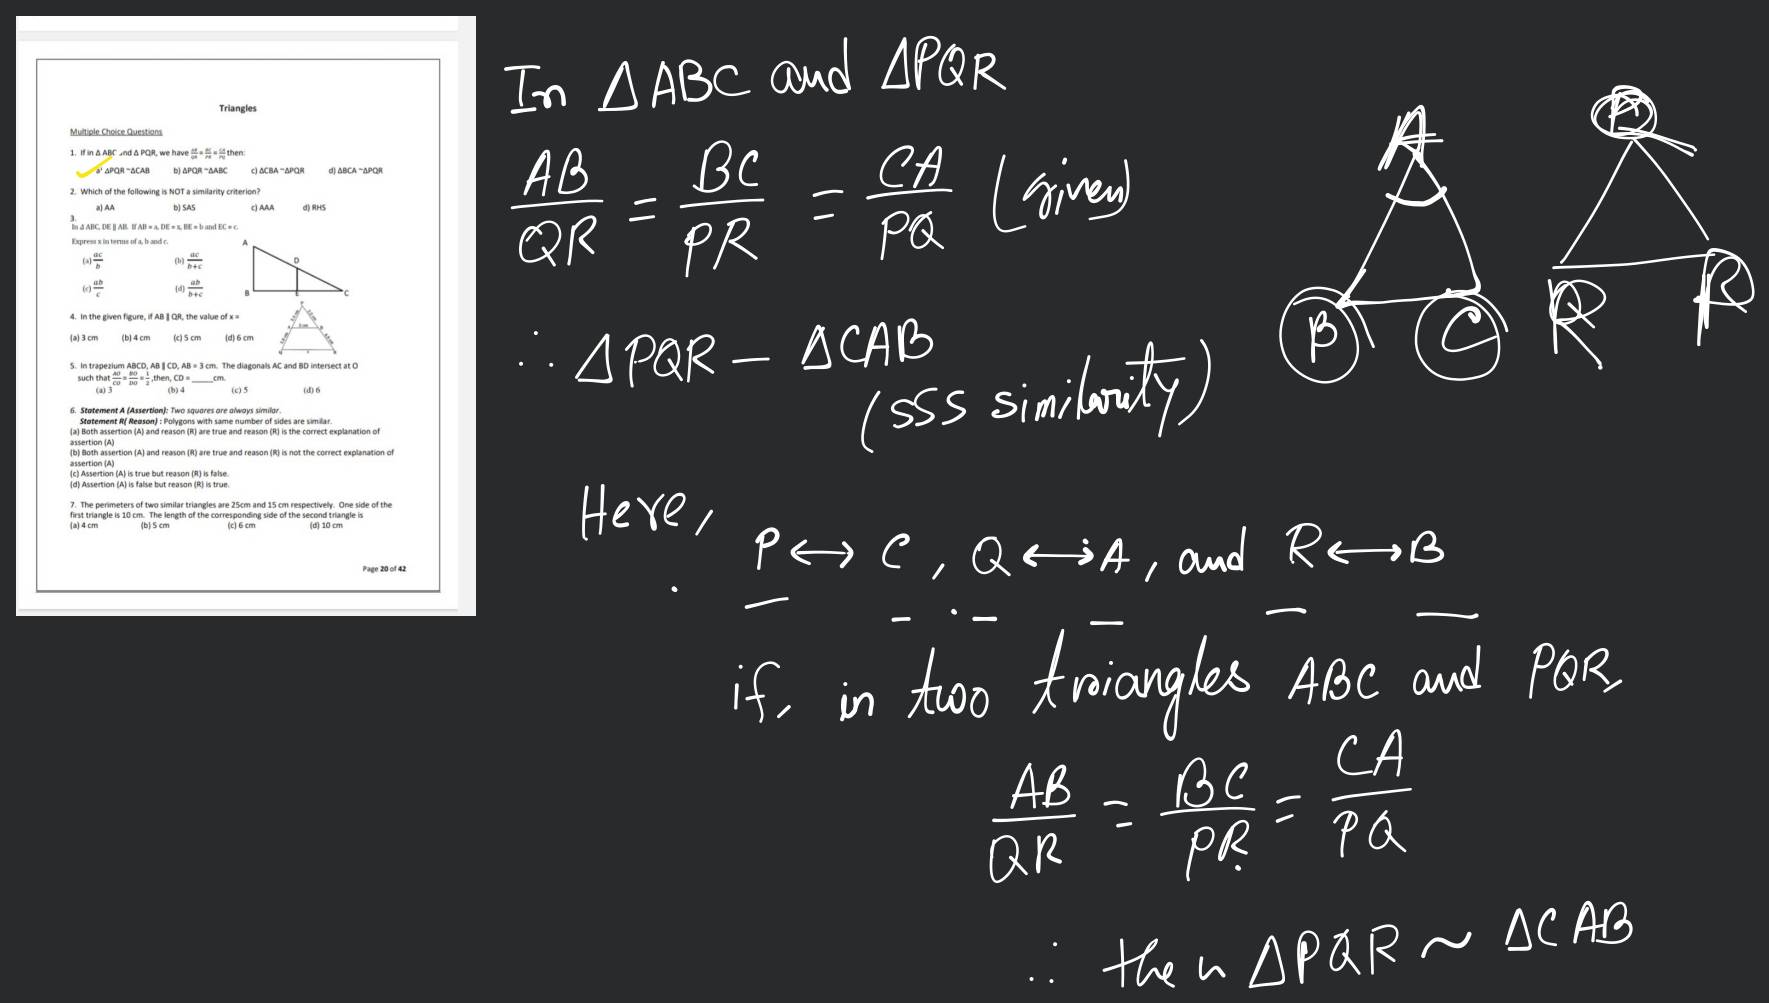 Triangles
Multiple Choice Questions
1. If in Δ ABC and Δ PQR, we have AB/QR = BC/PR = CA/PQ then:
a) ΔPQR ~ΔCAB b) ΔPQR ~ΔABC c) ΔCBA ~ΔPQR d) ΔBCA ~ΔPQR
2. Which of the following is NOT a similarity criterion?
a) AA b) SAS c) AAA d) RHS
3.
In Δ ABC, DE ∥ AB. If AB = a, DE = x, BE = b and EC = c.
Express x in terms of a, b and c.
(a) ac/b (b) ac/b+c
(c) ab/c (d) ab/b+c
A
D
B E C
4. In the given figure, if AB ∥ QR, the value of x =
(a) 3 cm (b) 4 cm (c) 5 cm (d) 6 cm
5. In trapezium ABCD, AB ∥ CD, AB = 3 cm. The diagonals AC and BD intersect at O
such that AO/CO = BO/DO = 1/2, then, CD = ____cm.
(a) 3 (b) 4 (c) 5 (d) 6
6. Statement A (Assertion): Two squares are always similar.
Statement R( Reason) : Polygons with same number of sides are similar.
(a) Both assertion (A) and reason (R) are true and reason (R) is the correct explanation of
assertion (A)
(b) Both assertion (A) and reason (R) are true and reason (R) is not the correct explanation of
assertion (A)
(c) Assertion (A) is true but reason (R) is false.
(d) Assertion (A) is false but reason (R) is true.
7. The perimeters of two similar triangles are 25cm and 15 cm respectively. One side of the
first triangle is 10 cm. The length of the corresponding side of the second triangle is
(a) 4 cm (b) 5 cm (c) 6 cm (d) 10 cm
Page 20 of 42
In ΔABC and ΔPQR
AB/QR = BC/PR = CA/PQ (given)
∴ ΔPQR – ΔCAB
(SSS similarity)
A
B C
P
Q R
Here,
P ↔ C, Q ↔ A, and R ↔ B
if, in two triangles ABC and PQR,
AB/QR = BC/PR = CA/PQ
∴ then ΔPQR ~ ΔCAB